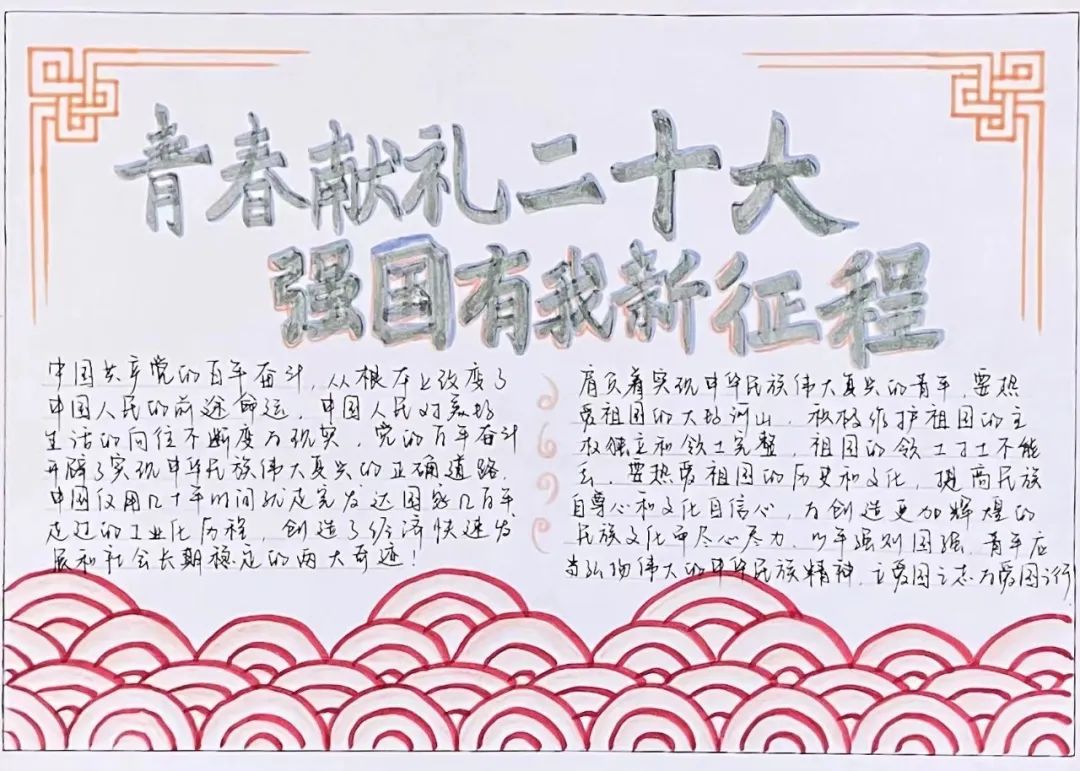 青春献礼二十大
强国有我新征程
中国共产党的百年奋斗，从根本上改变了
中国人民的前途命运，中国人民对美好
生活的向往不断变为现实，党的百年奋斗
开辟了实现中华民族伟大复兴的正确道路，
中国仅用几十年时间就走完发达国家几百年
走过的工业化历程，创造了经济快速发
展和社会长期稳定的两大奇迹！
肩负着实现中华民族伟大复兴的青年，要热
爱祖国的大好河山，积极维护祖国的主
权独立和领土完整，祖国的领土寸土不能
丢，要热爱祖国的历史和文化，提高民族
自尊心和文化自信心，为创造更加辉煌的
民族文化而尽心尽力，少年强则国强，青年应
当弘扬伟大的中华民族精神，立爱国之志为爱国之行